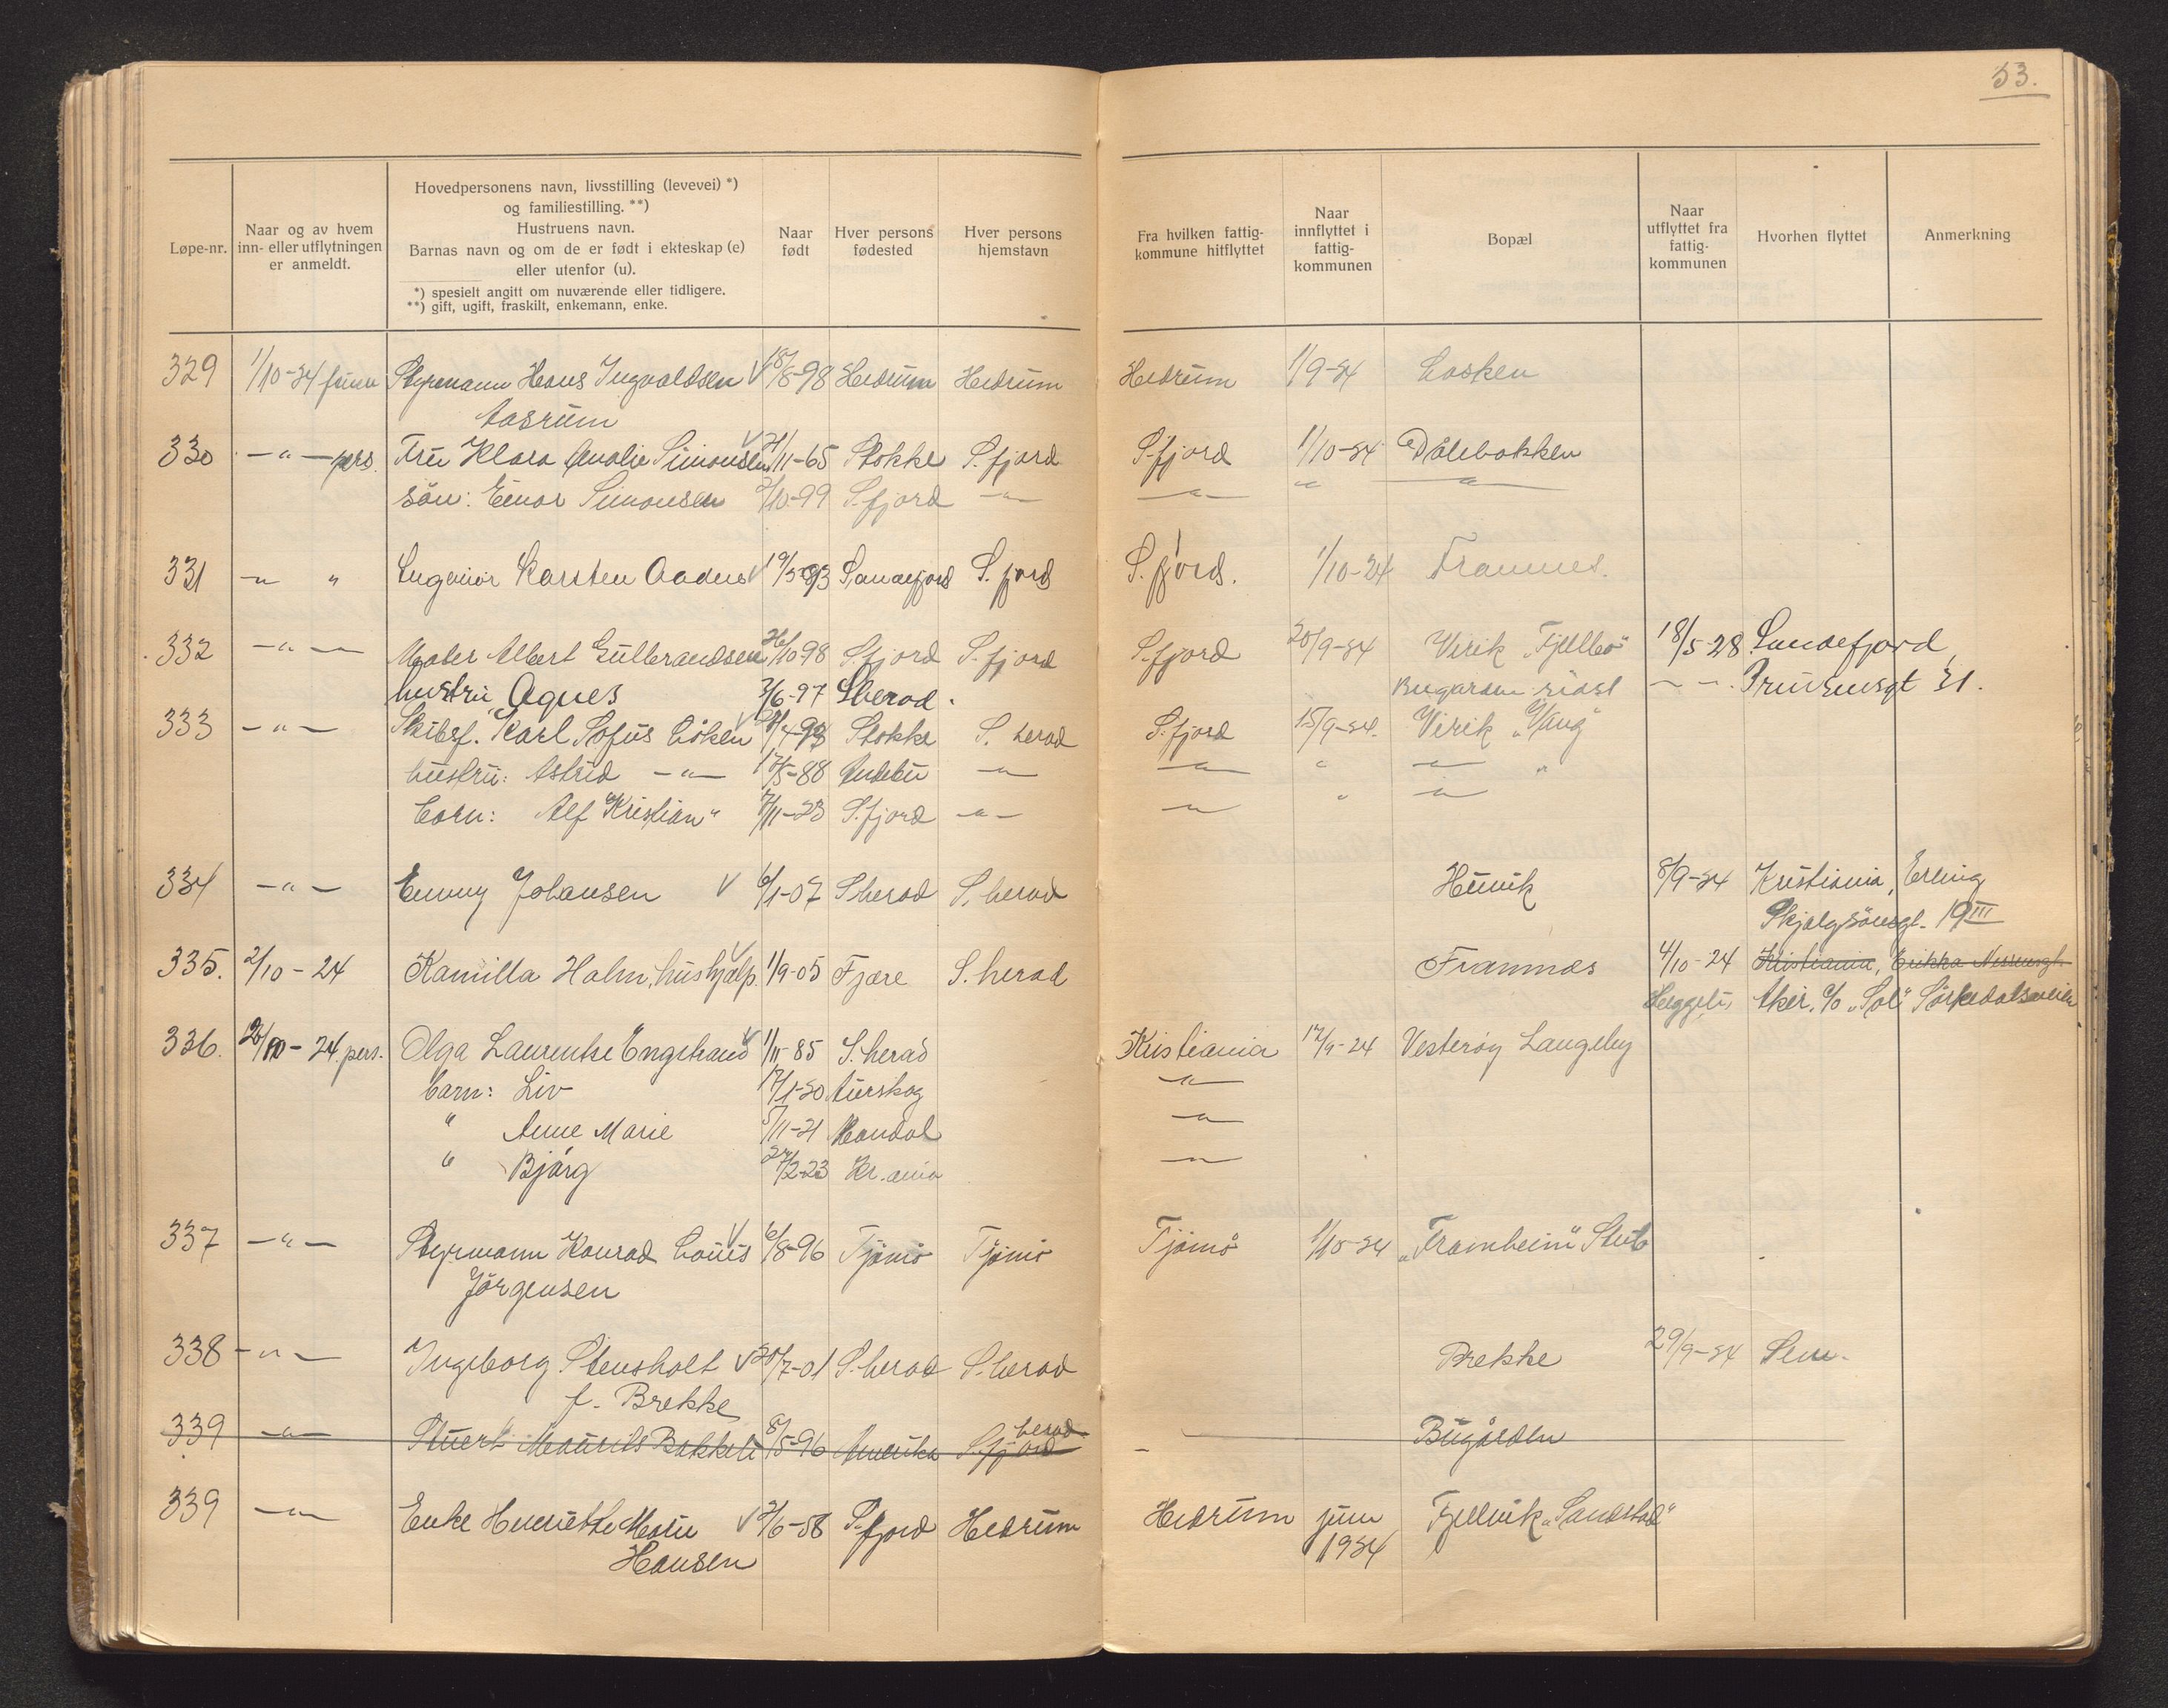 53.
Løpe-nr.
Naar og av hvem
inn- eller utflytningen
er anmeldt.
Hovedpersonens navn, livsstilling (levevei) *)
og familiestilling. **)
Hustruens navn.
Barnas navn og om de er født i ekteskap (e)
eller utenfor (u).
*) spesielt angitt om nuværende eller tidligere.
**) gift, ugift, fraskilt, enkemann, enke.
Naar
født
Hver persons
fødested
Hver persons
hjemstavn
Fra hvilken fattig-
kommune hitflyttet
Naar
innflyttet i
fattig-
kommunen
Bopæl
Naar
utflyttet fra
fattig-
kommunen
Hvorhen flyttet
Anmerkning
329 1/10-24 Styrmann Hans Ingvaldsen V 18/8-98 Hedrum Hedrum Hedrum 1/9-24
Aasrum
330 -"- pers. Fru Klara Amalie Simonsen V 21/11-65 Stokke S.fjord S.fjord 1/10-24 Dølebakken
sön: Einar Simonsen 2/10-99 S.fjord -"- -"- " -"-
331 -" " Ingeniör Karsten Aadne V 19/5-93 Sandefjord S.fjord S.fjord. 1/10-24 Framnes.
332 -"- Maler Albert Gulbrandsen 26/10-98 S.fjord S.fjord S.fjord 20/9-24 Virik "Fjellbo" 18/5-28 Sandefjord,
hustru Agnes 3/6-97 S.herad. Bugården -"-
333 -"- Skibsf. Karl Sofus Löken V S.Stokke S. herad S.fjord 15/9-24. Virik "Vang"
hustru: Astrid -"- 17/5-88 Andebu -"- -"- " -"- "
barn: Alf Kristian " 7/11-23 S.fjord -"- -"- " -"-
334 -"- Emmy Johansen V 6/1-07 S.herad S.herad Hunvik 8/9-24 Kristiania, Erling
Skjalgsönsgt. 19 III
335. 2/10-24 Kamilla Holm, hushjælp. V 1/9-05 Fjære S.herad Framnæs 4/10-24 Kristiania, Erikka Nissensgt.
Heggeli, Aker. c/o "Sol" Sörkedalsveien
336. 2/10-24 pers. Olga Laurentse Engstrand V 1/11-85 S.herad Kristiania 17/9-24 Vesteröy Langeby
barn: Liv 17/1-20 Aurskog -"-
" Anne Marie 5/11-21 Mandal -"-
" Bjärg 24/2-23 Kr.ania -"-
337 -"- Styrmann Konrad Louis V 6/8-96 Tjömö Tjömö Tjömö 1/10-24 "Framheim" Stub
Jörgensen
338 -"- Ingeborg Stensholt V 30/7-01 S.herad S.herad Brekke 29/9-24 Sem.
f. Brekke
339 -"- Stuert Maurits Bakken 8/5-96 Amerika S.fjord herad - Bugården
339 -"- Enke Henriette Marie V 2/6-58 S.fjord Hedrum Hedrum juni Fjellvik "Sandstad"
Hansen 1924